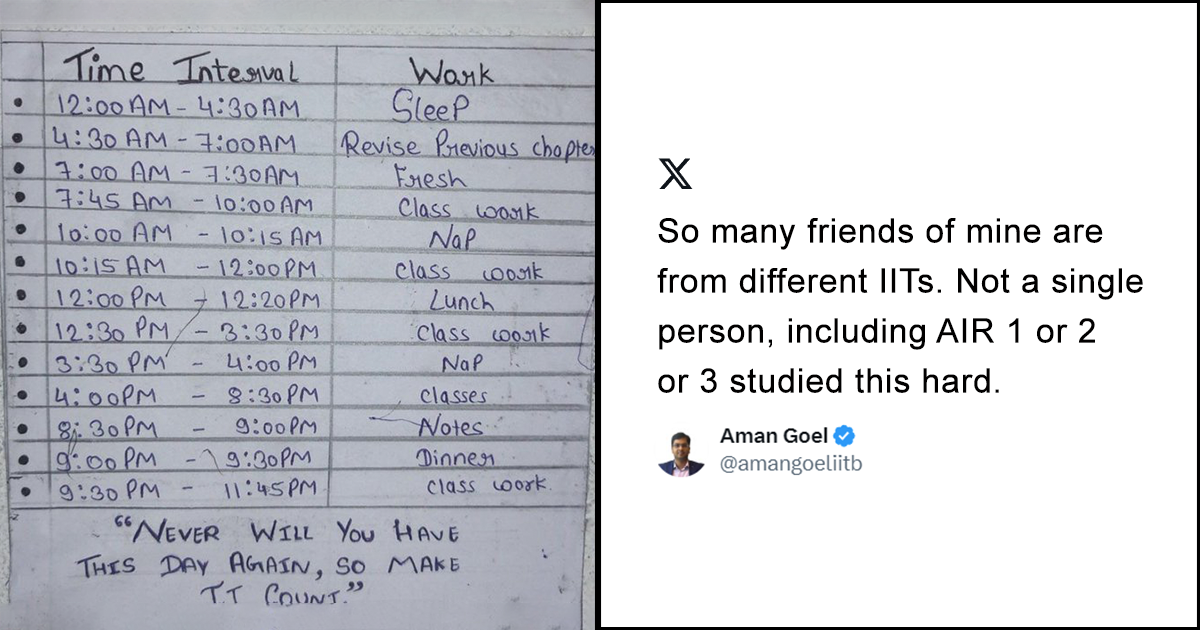 Time Interval Work
12:00 AM - 4:30 AM Sleep
4:30 AM - 7:00 AM Revise Previous chapter
7:00 AM - 7:30 AM Fresh
7:45 AM - 10:00 AM Class work
10:00 AM - 10:15 AM Nap
10:15 AM - 12:00 PM Class work
12:00 PM - 12:20 PM Lunch
12:30 PM - 3:30 PM Class work
3:30 PM - 4:00 PM Nap
4:00 PM - 8:30 PM Classes
8:30 PM - 9:00 PM Notes
9:00 PM - 9:30 PM Dinner
9:30 PM - 11:45 PM Class work
“NEVER WILL YOU HAVE
THIS DAY AGAIN, SO MAKE
IT COUNT.”
X
So many friends of mine are
from different IITs. Not a single
person, including AIR 1 or 2
or 3 studied this hard.
Aman Goel
@amangoeliitb